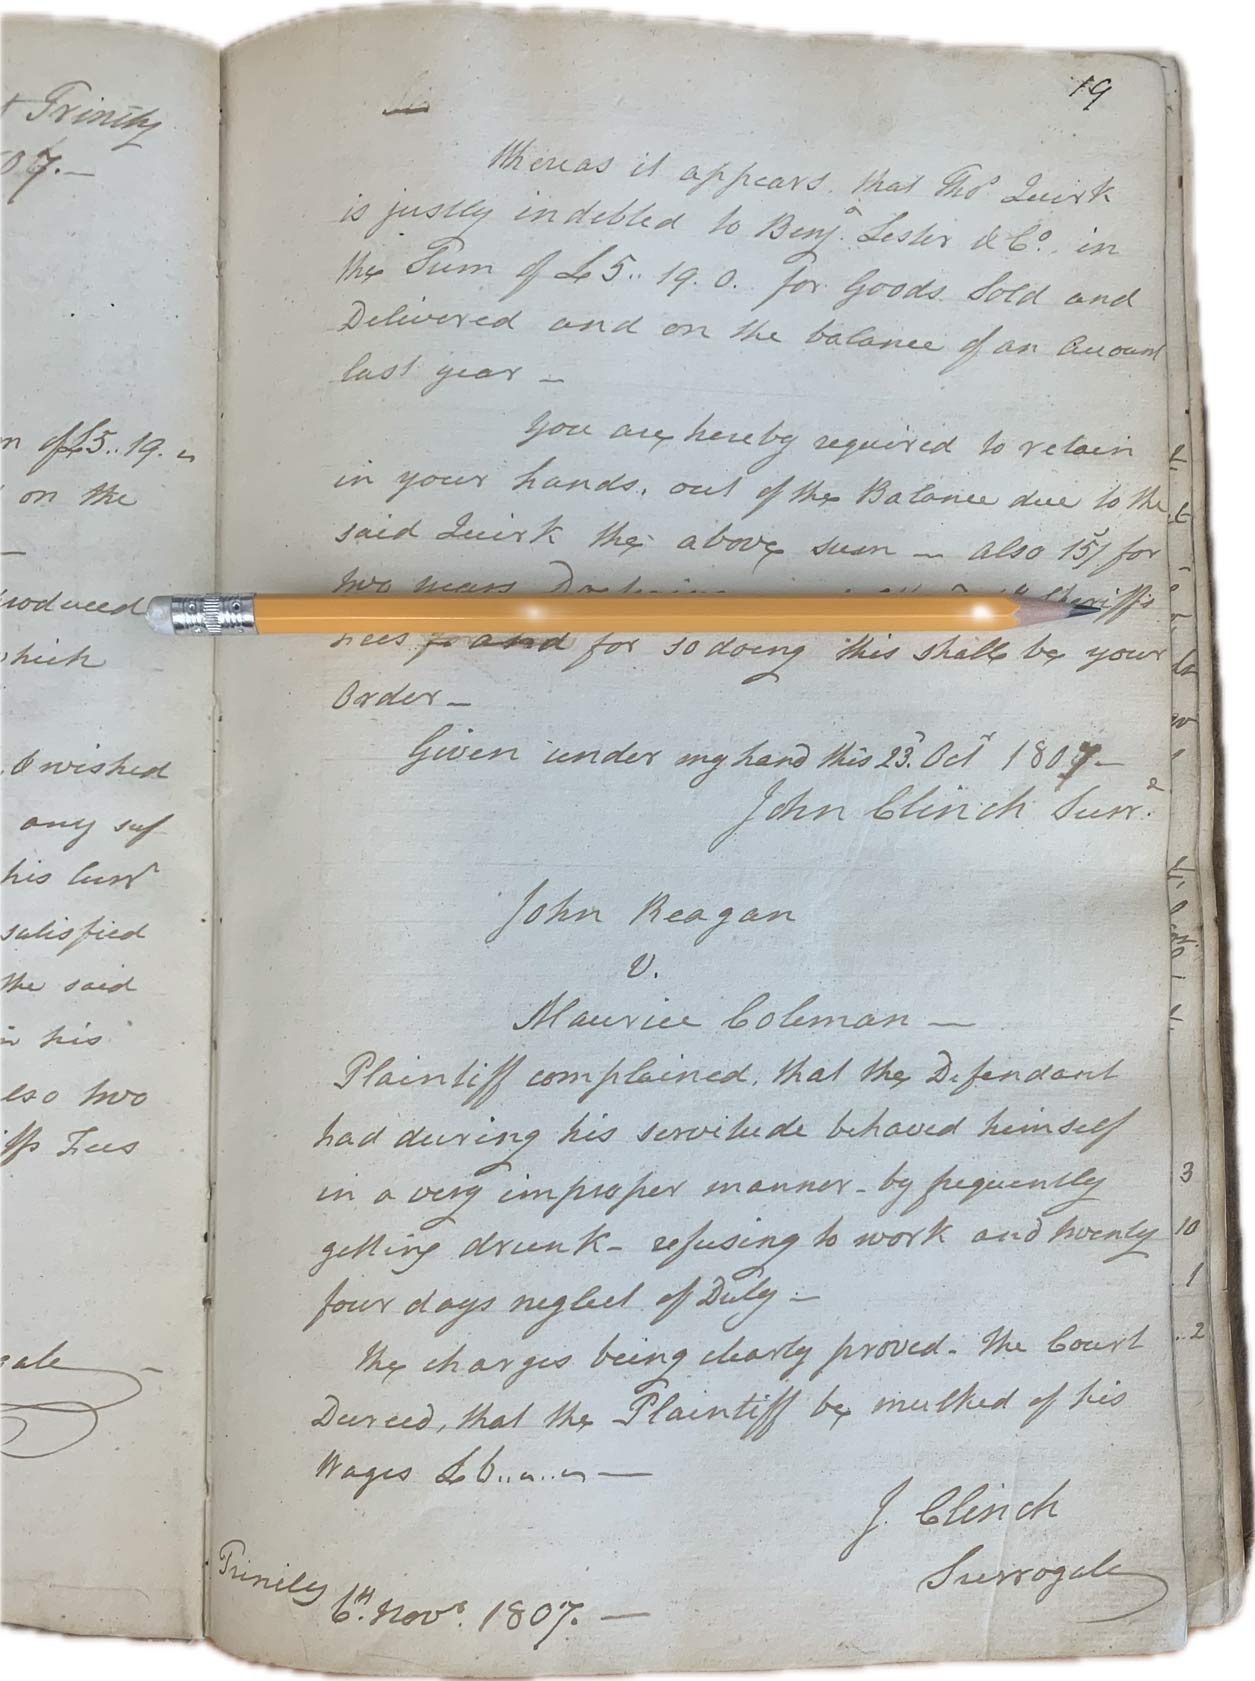 + Trinity
07.—
n of £5.. 19. "
on the
—
roduced
which
I wished
any suf
his Curr
satisfied
the said
in his
also two
iffs Fees
gate —
19
Sir
Whereas it appears. that Thos. Quirk
is justly indebted to Benjn. Lester & Co. in
the Sum of £5.. 19. 0. for Goods Sold and
Delivered and on the balance of an Account
last year —
You are hereby required to retain
in your hands, out of the Balance due to the
said Quirk the above sum — also 15/ for
two years Sheriffs
Fees for and for so doing this shall be your
Order —
Given under my hand this 23d. Octr 1807—
John Clinch Surre.
John Reagan
V.
Maurice Coleman —
Plaintiff complained, that the Defendant
had during his servitude behaved himself
in a very improper manner — by frequently
getting drunk — refusing to work and twenty
four days neglect of Duty —
The charges being clearly proved — The Court
Decreed, that the Plaintiff be mulked of his
Wages £6.. ".. " —
J. Clinch
Surrogate
Trinity
6th. Novr. 1807. —
3
10
1
..2